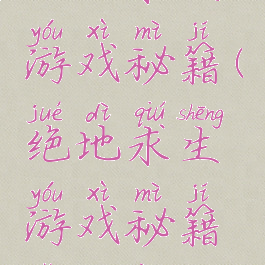 yóu xì mì jí
游戏秘籍(
jué dì qiú shēng
绝地求生
yóu xì mì jí
游戏秘籍